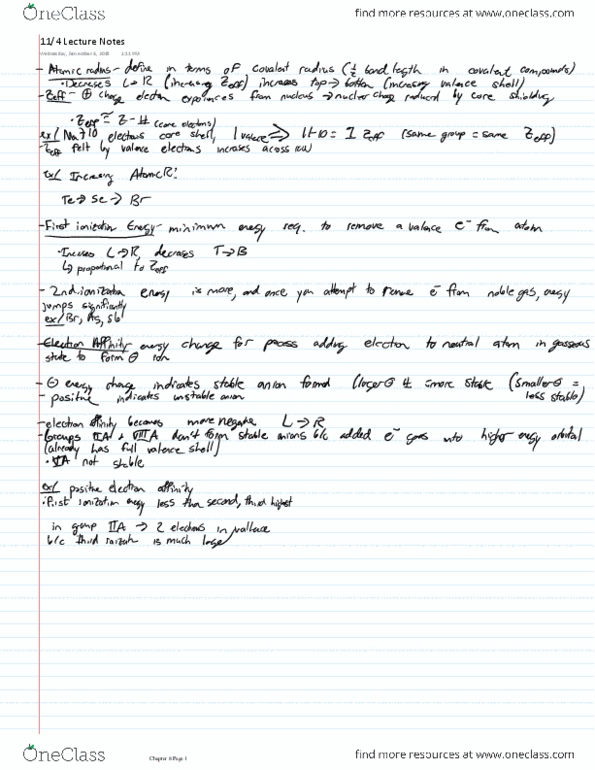 OneClass
find more resources at www.oneclass.com
11/4 Lecture Notes
Wednesday, November 4, 2015 1:11 PM
- Atomic radius - define in terms of covalent radius (½ bond length in covalent compounds)
• Decreases L→R (increasing Zeff) increases top → bottom (increasing valence shell)
- Zeff - ⊕ charge electron experiences from nucleus → nuclear charge reduced by core shielding
• Zeff = Z - # (core electrons)
ex/ Na 10 electrons core shell, 1 valence ⇒ 11-10 = 1 Zeff (same group = same Zeff)
- Zeff felt by valence electrons increases across row
ex/ Increasing Atomic R:
Te → Se → Br
- First ionization Energy - minimum energy req. to remove a valence e⁻ from atom
• Increases L→R, decreases T→B
↳ proportional to Zeff
- 2nd ionization energy is more, and once you attempt to remove e⁻ from noble gas, energy
jumps significantly
ex/ Br, As, Sb
- Electron Affinity - energy change for process adding electron to neutral atom in gaseous
state to form ⊖ ion
- ⊖ energy change indicates stable anion formed (larger ⊖ # = more stable (smaller ⊖ =
- positive indicates unstable anion less stable)
- electron affinity becomes more negative L→R
- Groups IIA + VIIIA don't form stable anions b/c added e⁻ goes into higher energy orbital
(already has full valence shell)
• VA not stable
ex/ positive electron affinity
• first ionization energy less than second, third highest
in group IIA → 2 electrons in vallace
b/c third ionizatn is much large
OneClass
Chapter 8 Page 1
find more resources at www.oneclass.com